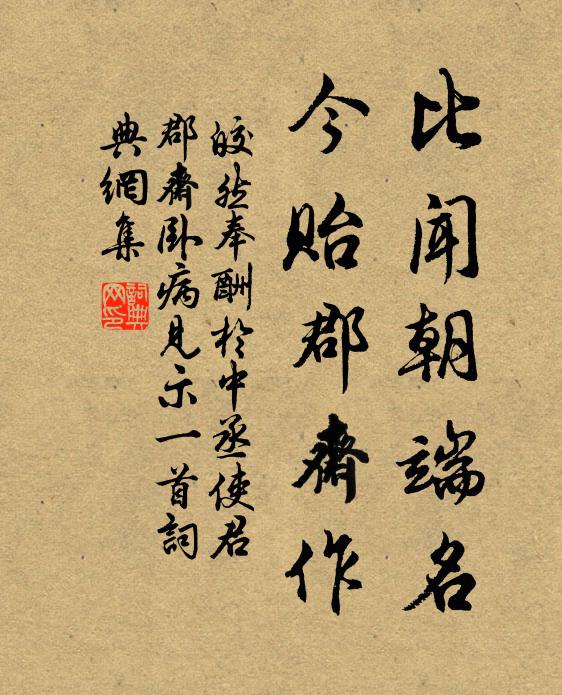 比闻朝端名
今贻郡斋作
皎然奉酬於中丞使君
郡斋卧病見示一首詞
典網集
詞典网印